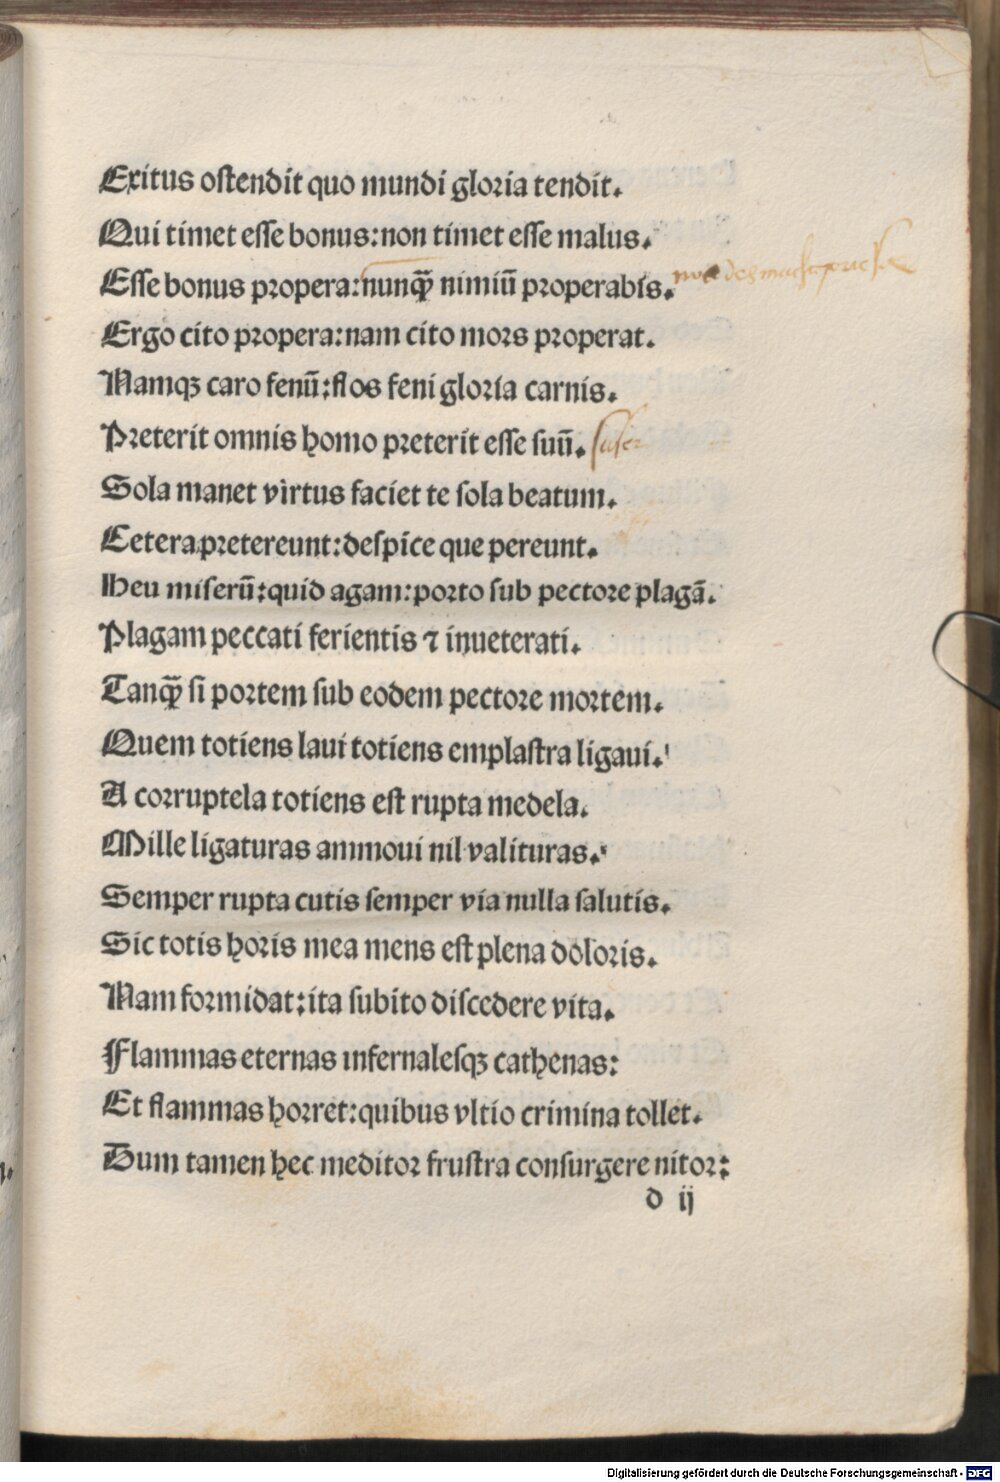 Exitus oſtendit quo mundi gloria tendit.
Qui timet eſſe bonus:non timet eſſe malus.
Eſſe bonus propera:nunq̄ nimiū properabis.
Ergo cito propera:nam cito mors properat.
Namqꝫ caro fenū:flos feni gloria carnis.
Preterit omnis homo preterit eſſe ſuū.
Sola manet virtus faciet te ſola beatum.
Cetera pretereunt:deſpice que pereunt.
Heu miſerū:quid agam:porto ſub pectore plagā.
Plagam peccati ferientis ⁊ inueterati.
Tanq̄ ſi portem ſub eodem pectore mortem.
Quem totiens laui totiens emplaſtra ligaui.
A corruptela totiens eſt rupta medela.
Mille ligaturas ammoui nil valituras.
Semper rupta cutis ſemper via nulla ſalutis.
Sic totis horis mea mens eſt plena doloris.
Nam formidat:ita ſubito diſcedere vita.
Flammas eternas infernaleſqꝫ cathenas:
Et flammas horret:quibus vltio crimina tollet.
Dum tamen hec meditor fruſtra conſurgere nitor:
d ij
Digitalisierung gefördert durch die Deutsche Forschungsgemeinschaft - DFG